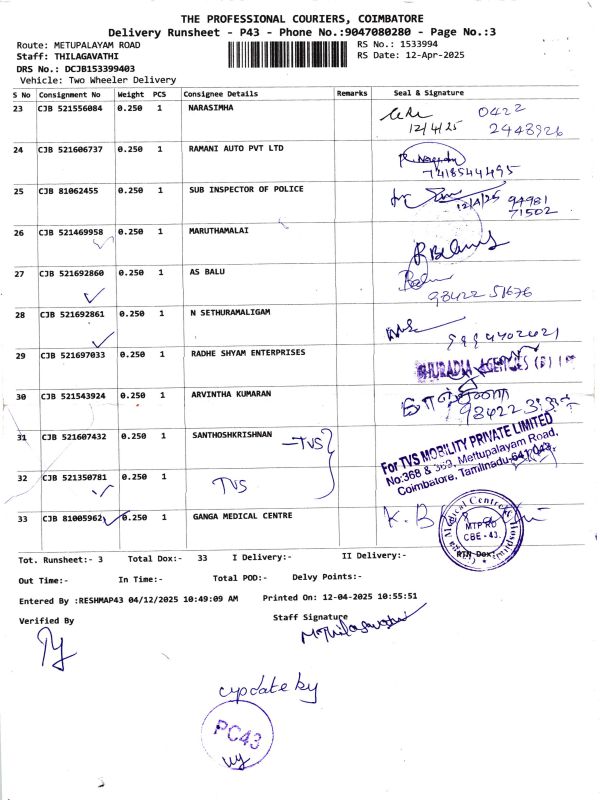 THE PROFESSIONAL COURIERS, COIMBATORE
Delivery Runsheet - P43 - Phone No.:9047080280 - Page No.:3
Route: METUPALAYAM ROAD
RS No.: 1533994
Staff: THILAGAVATHI
RS Date: 12-Apr-2025
DRS No.: DCJB153399403
Vehicle: Two Wheeler Delivery
S No Consignment No Weight PCS Consignee Details Remarks Seal & Signature
23 CJB 521556084 0.250 1 NARASIMHA 0422
12/4/25 2448926
24 CJB 521606737 0.250 1 RAMANI AUTO PVT LTD
7418544495
25 CJB 81062455 0.250 1 SUB INSPECTOR OF POLICE
12/4/25 94981
71502
26 CJB 521469958 0.250 1 MARUTHAMALAI
27 CJB 521692860 0.250 1 AS BALU
98422 51676
28 CJB 521692861 0.250 1 N SETHURAMALIGAM
29 CJB 521697033 0.250 1 RADHE SHYAM ENTERPRISES
30 CJB 521543924 0.250 1 ARVINTHA KUMARAN
31 CJB 521607432 0.250 1 SANTHOSHKRISHNAN - TVS
For TVS MOBILITY PRIVATE LIMITED
No:368 & 369, Mettupalayam Road,
Coimbatore, Tamilnadu-641 043.
32 CJB 521350781 0.250 1 TVS
33 CJB 81005962 0.250 1 GANGA MEDICAL CENTRE
Ganga Medical Centre & Hospitals
MTP RD
CBE - 43.
Tot. Runsheet:- 3 Total Dox:- 33 I Delivery:- II Delivery:- RTN Dox:-
Out Time:- In Time:- Total POD:- Delvy Points:-
Entered By :RESHMAP43 04/12/2025 10:49:09 AM Printed On: 12-04-2025 10:55:51
Verified By Staff Signature
M. Thilagavathi
update by
PC43